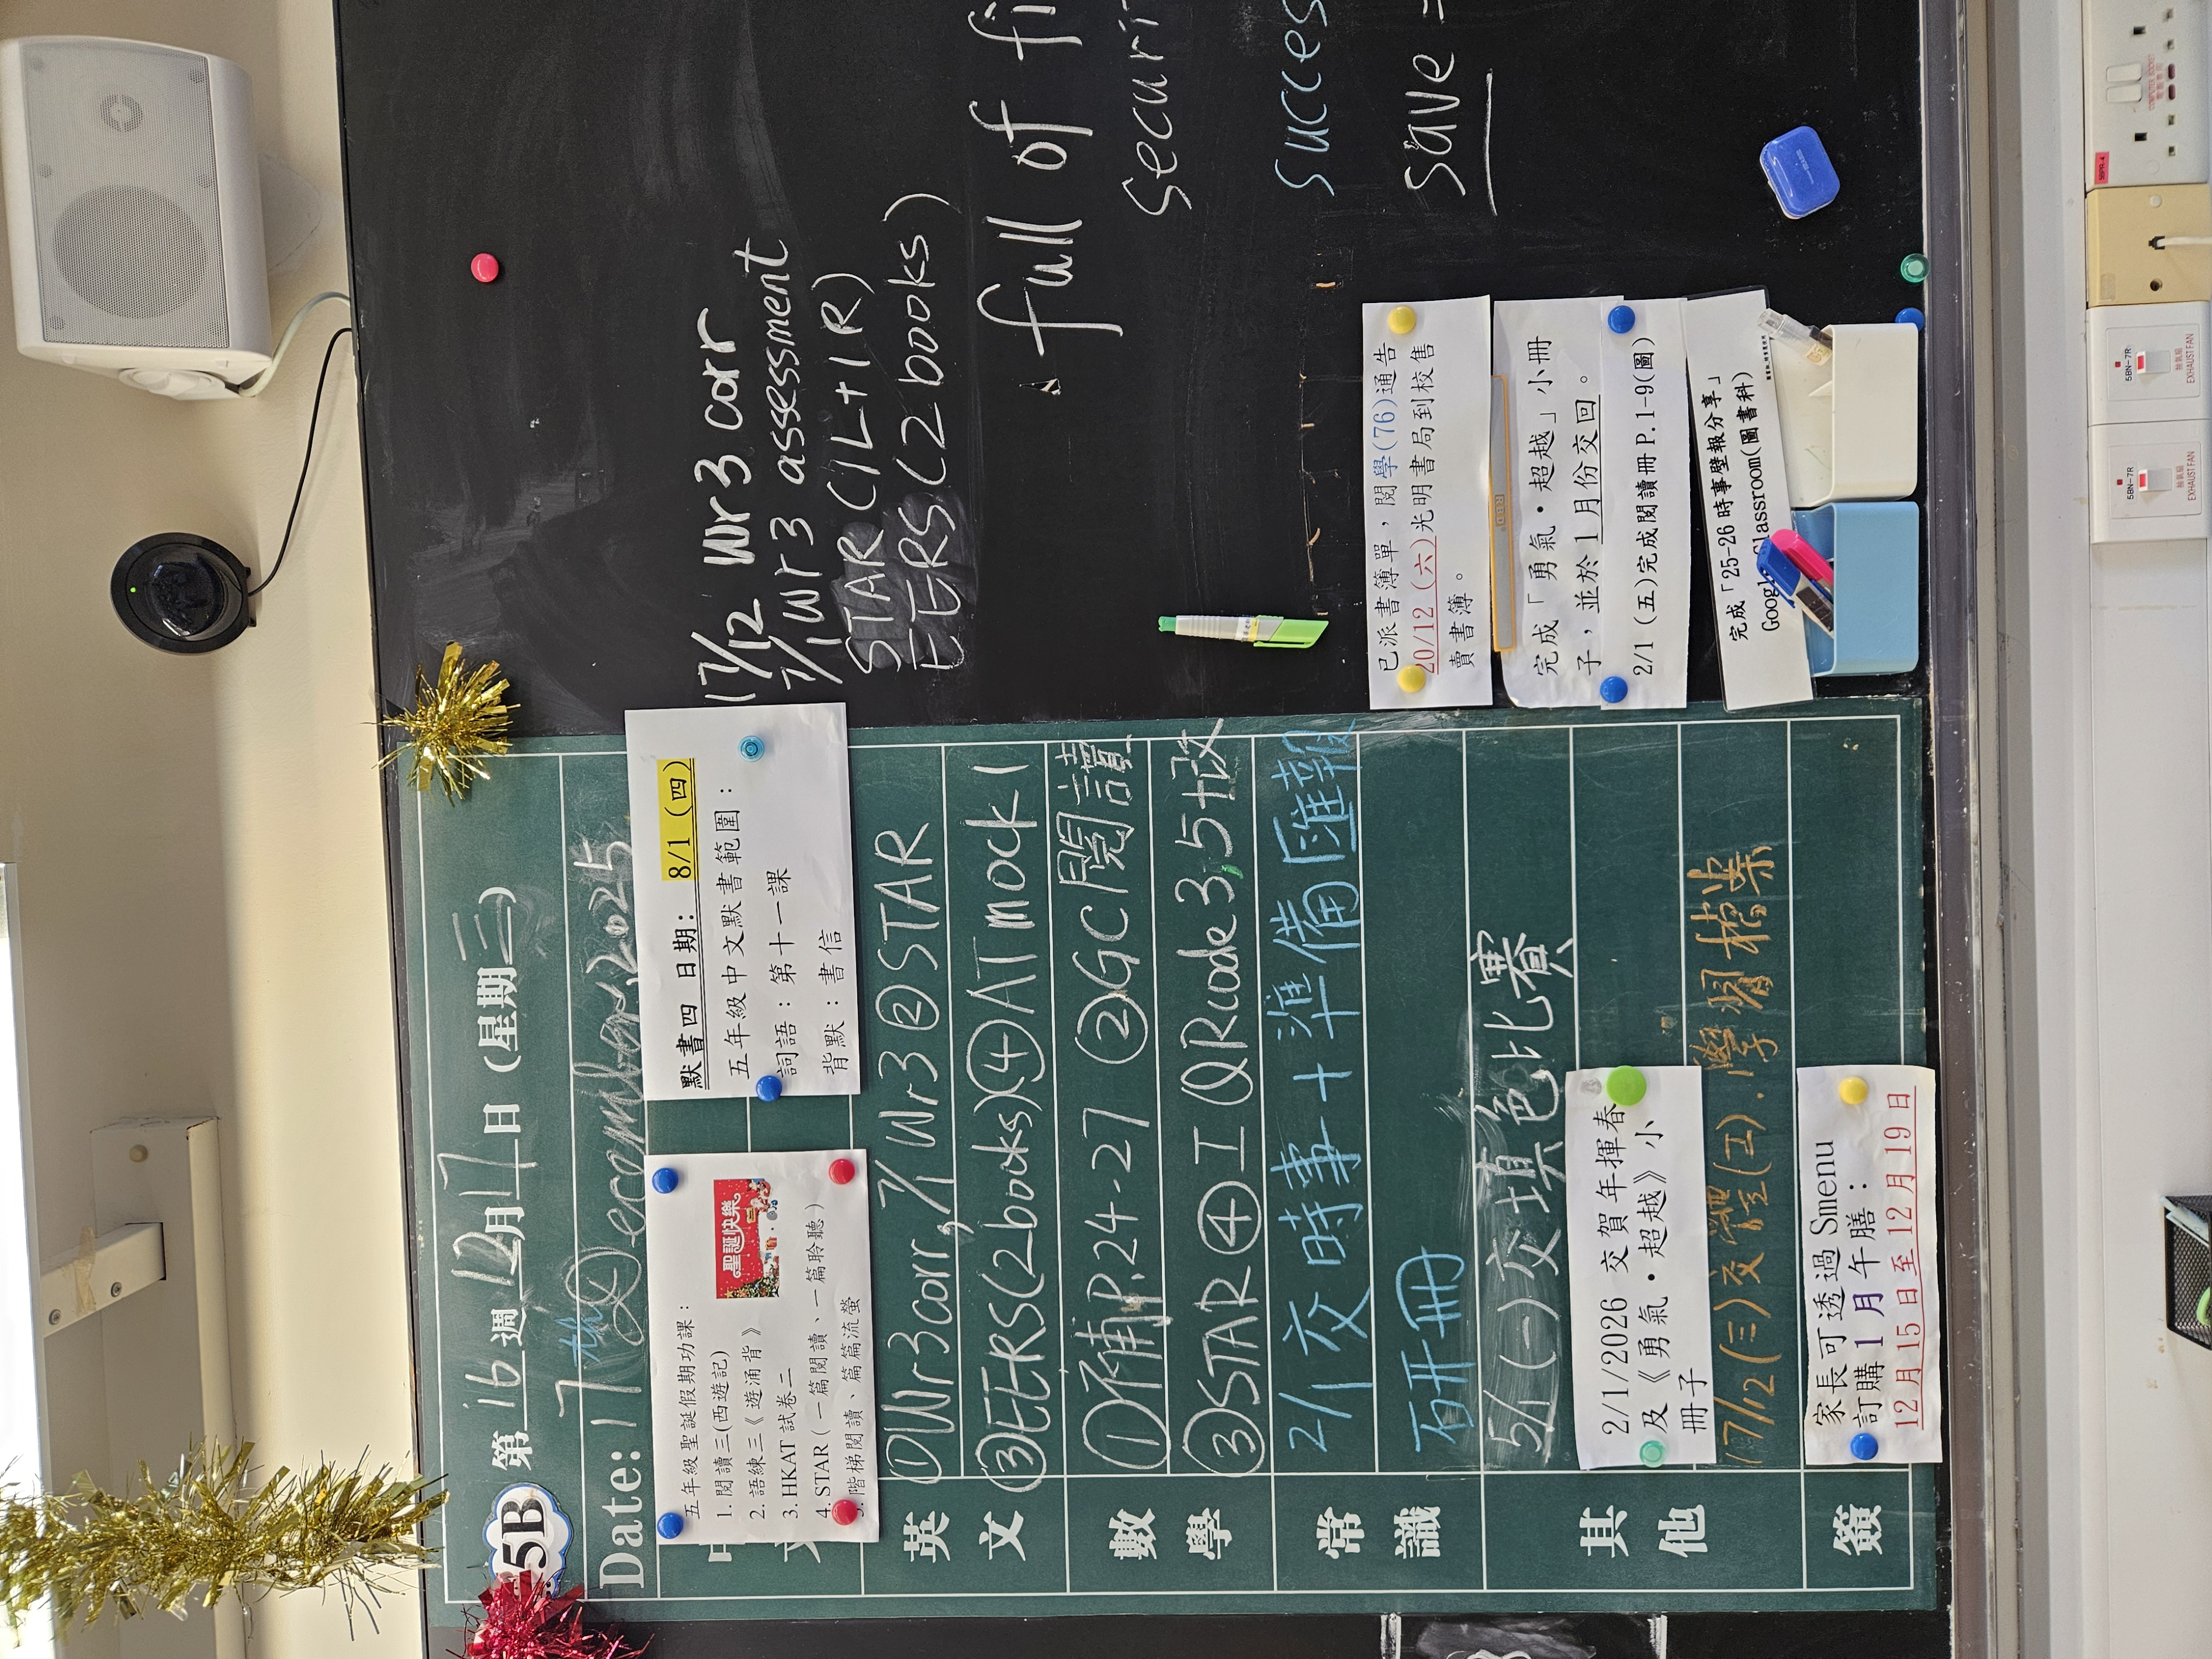 5B
第 16 週 12 月 17 日 (星期三)
Date: 17th December 2025
五年級聖誕假期功課：
1. 閱讀三(西遊記)
2. 語練三《遊涌背》
3. HKAT 試卷二
4. STAR (一篇閱讀、一篇聆聽)
5. 階梯閱讀、篇篇流螢
聖誕快樂
默書四 日期： 8/1 (四)
五年級中文默書範圍：
詞語：第十一課
背默：書信
英文
①Wr3corr, 7/1 Wr3 ②STAR
③EERS(2books) ④AT mock 1
數學
①補P.24-27 ②GC閱讀
③STAR ④工 QR code 3,5+改
常識
2/1 交時事+準備匯報
研冊
其他
5/1 (一) 交填色比賽
2/1/2026 交賀年揮春
及《勇氣・超越》小
冊子
17/12(三)交 . 學習檔案
簽
家長可透過 Smenu
訂購 1 月午膳：
12月15日至12月19日
17/12 Wr3 corr
7/1 Wr3 assessment
STAR (1L+1R)
EERS (2 books)
full of fi
Securi
Succes
Save =
已派書簿單，閱學(76)通告
20/12 (六)光明書局到校售
賣書簿。
完成「勇氣・超越」小冊
子，並於 1 月份交回。
2/1 (五)完成閱讀冊 P.1-9(圖)
完成「25-26 時事壁報分享」
Google Classroom(圖書科)
5BN-7R
EXHAUST FAN
5BN-7R
EXHAUST FAN